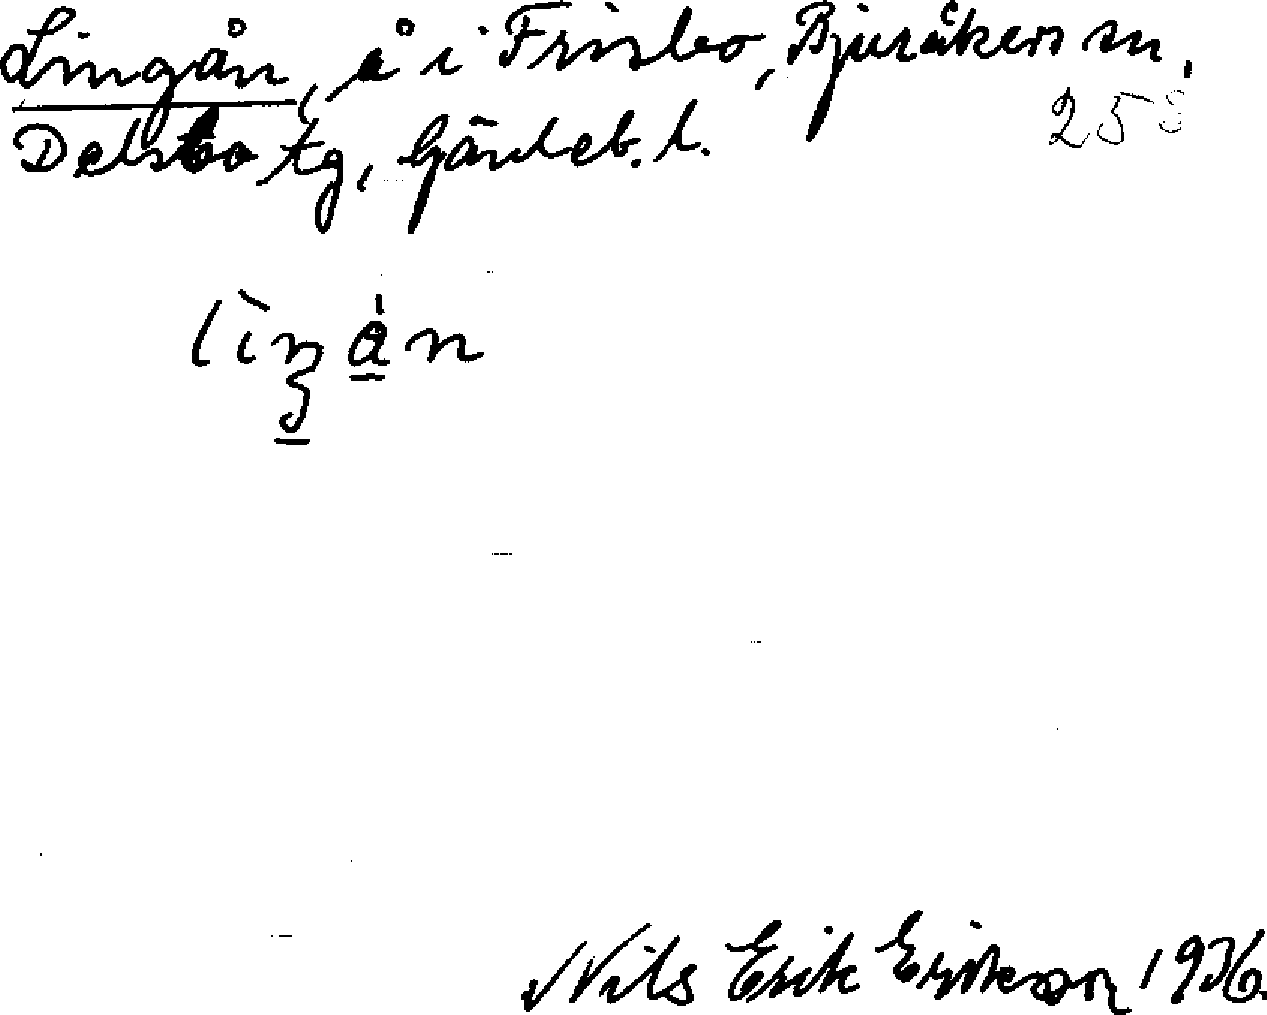 Lingån, å i Frisbo, Bjuråkers sn,
25
Delsbo tg, Gävleb. l.
lìŋån
Nils Erik Erikson 1936.